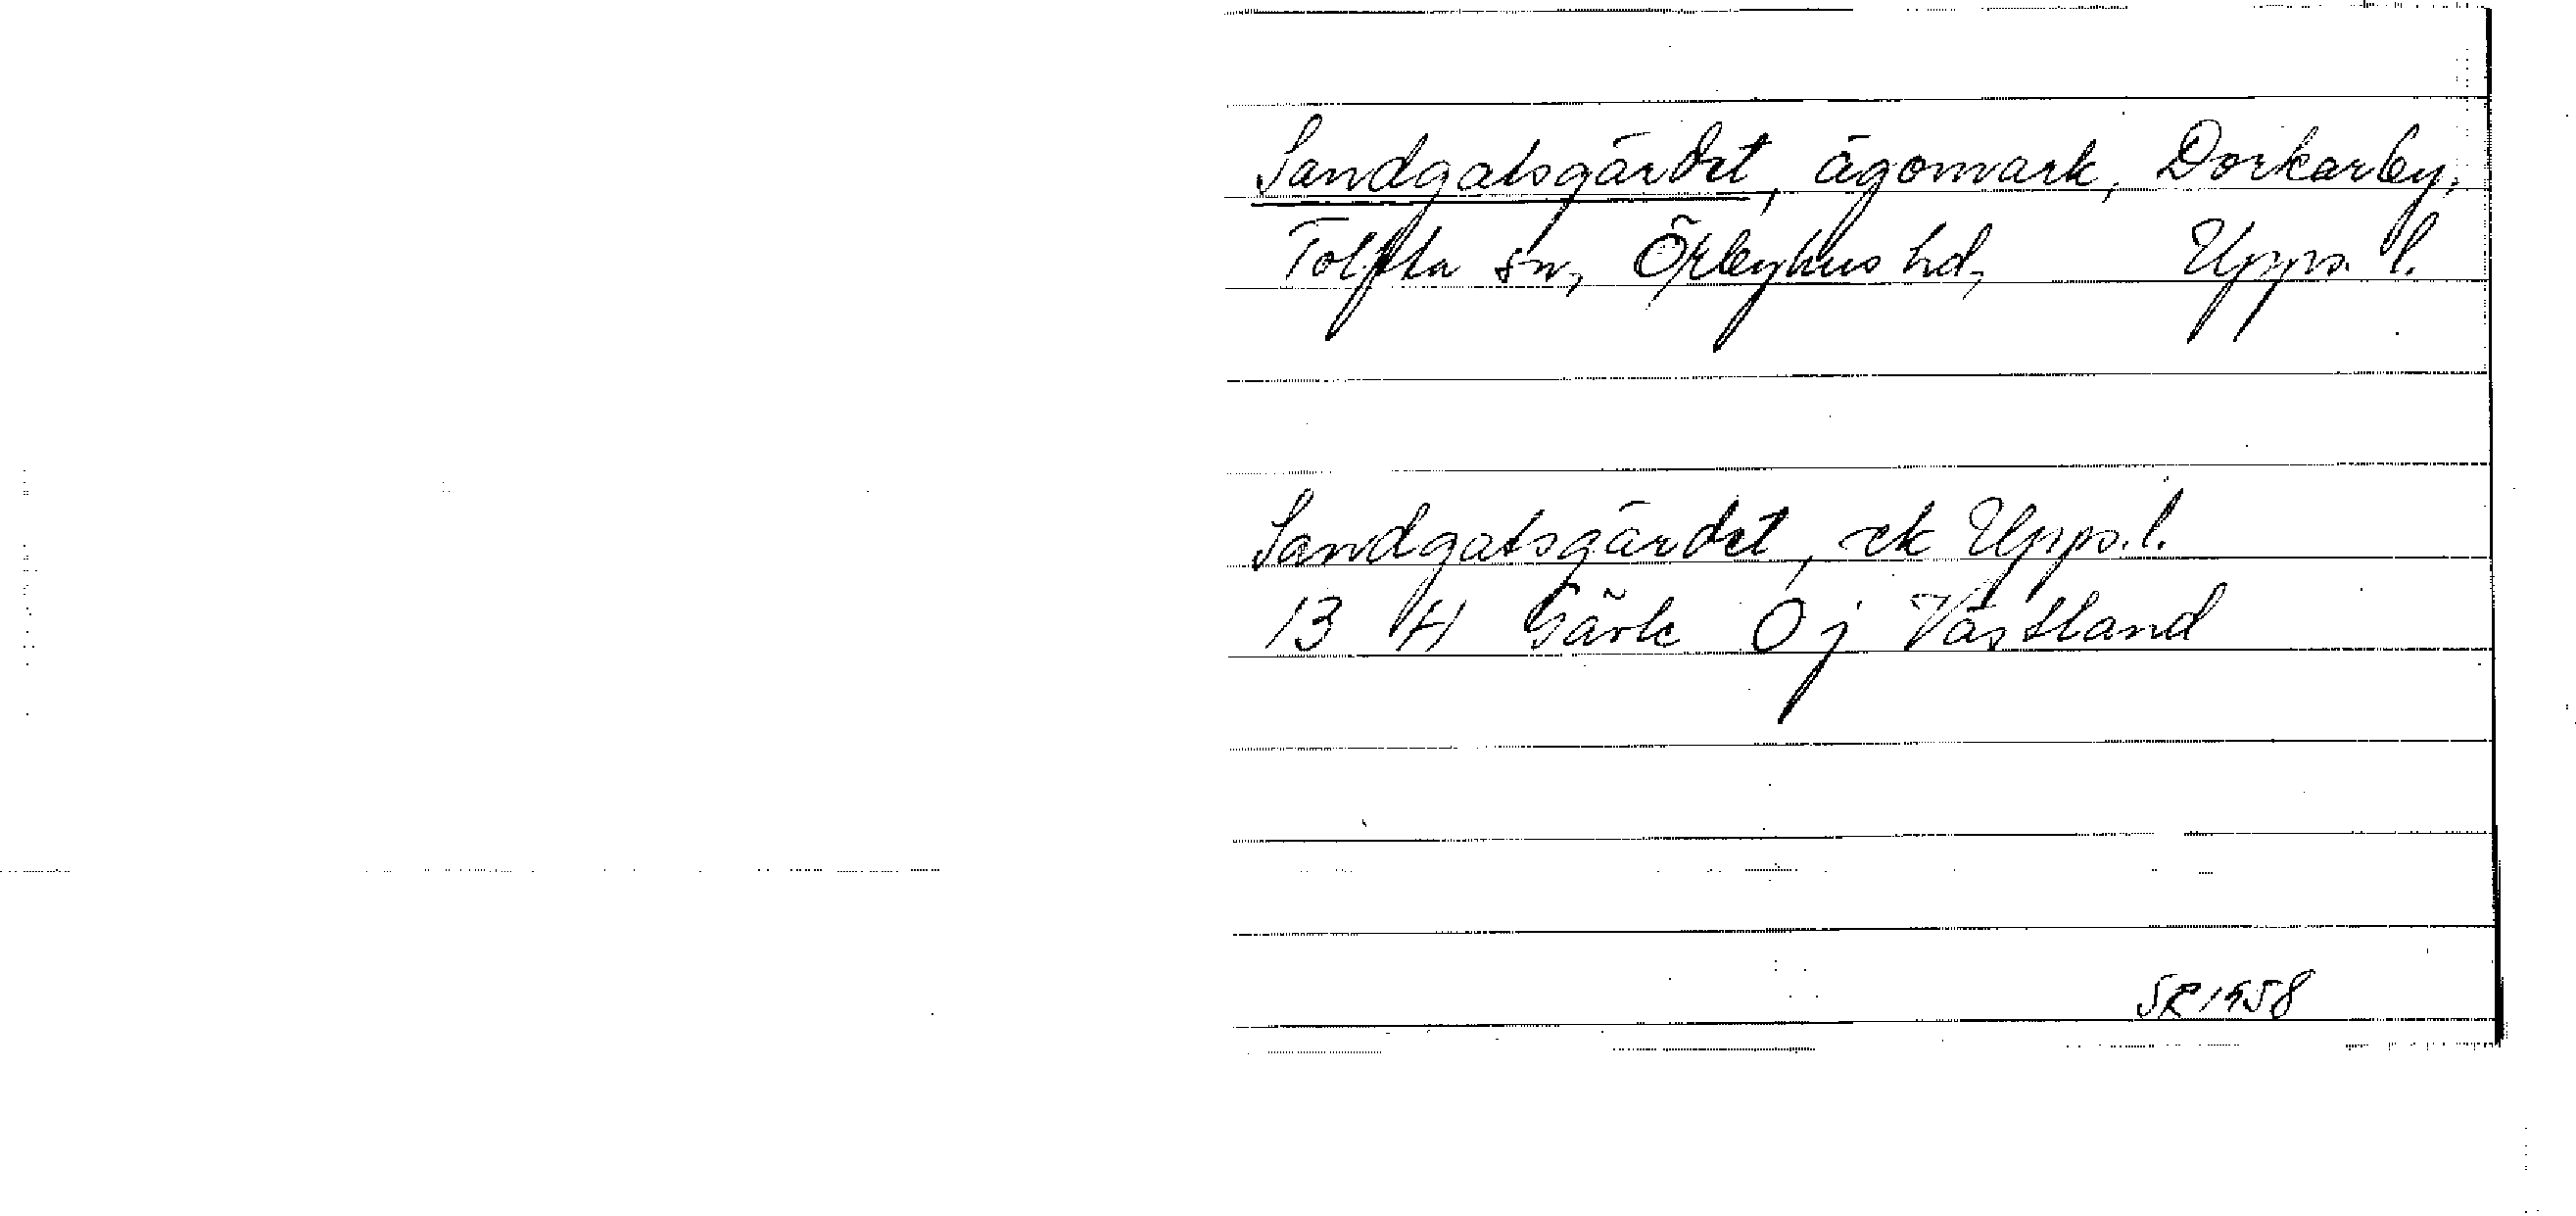 Sandgatsgärdet, ägomark, Dorkarby,
Tolfta sn, Örbyhus hd, Upps. l.
Sandgatsgärdet, ek Upps. l.
13 H Gävle 0 j Västland
SR 1958